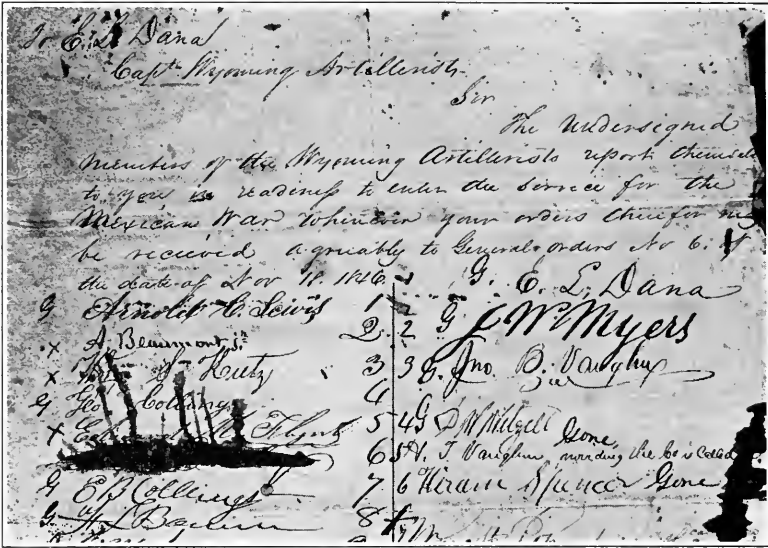 To E. L. Dana
Capt. Wyoming Artillerists
Sir
The Undersigned
members of the Wyoming Artillerists report themsel
to you in readiness to enter the service for the
Mexican War whenever your orders therefor may
be received agreeably to General orders No 6. of
the date of Nov 18. 1846.
G Arnold C. Lewis 1
x A. Beaumont jr. 2
x Kutz 3
G Geo Collings 4
x 5
6
G E B Collings 7
G 8
G. E. L. Dana
2 G J W Myers
3 G. Jno. B. Vaughn
4 G
5 A. T. Vaughn Gone, minding the Co is Called
6 Hiram Spencer Gone
7